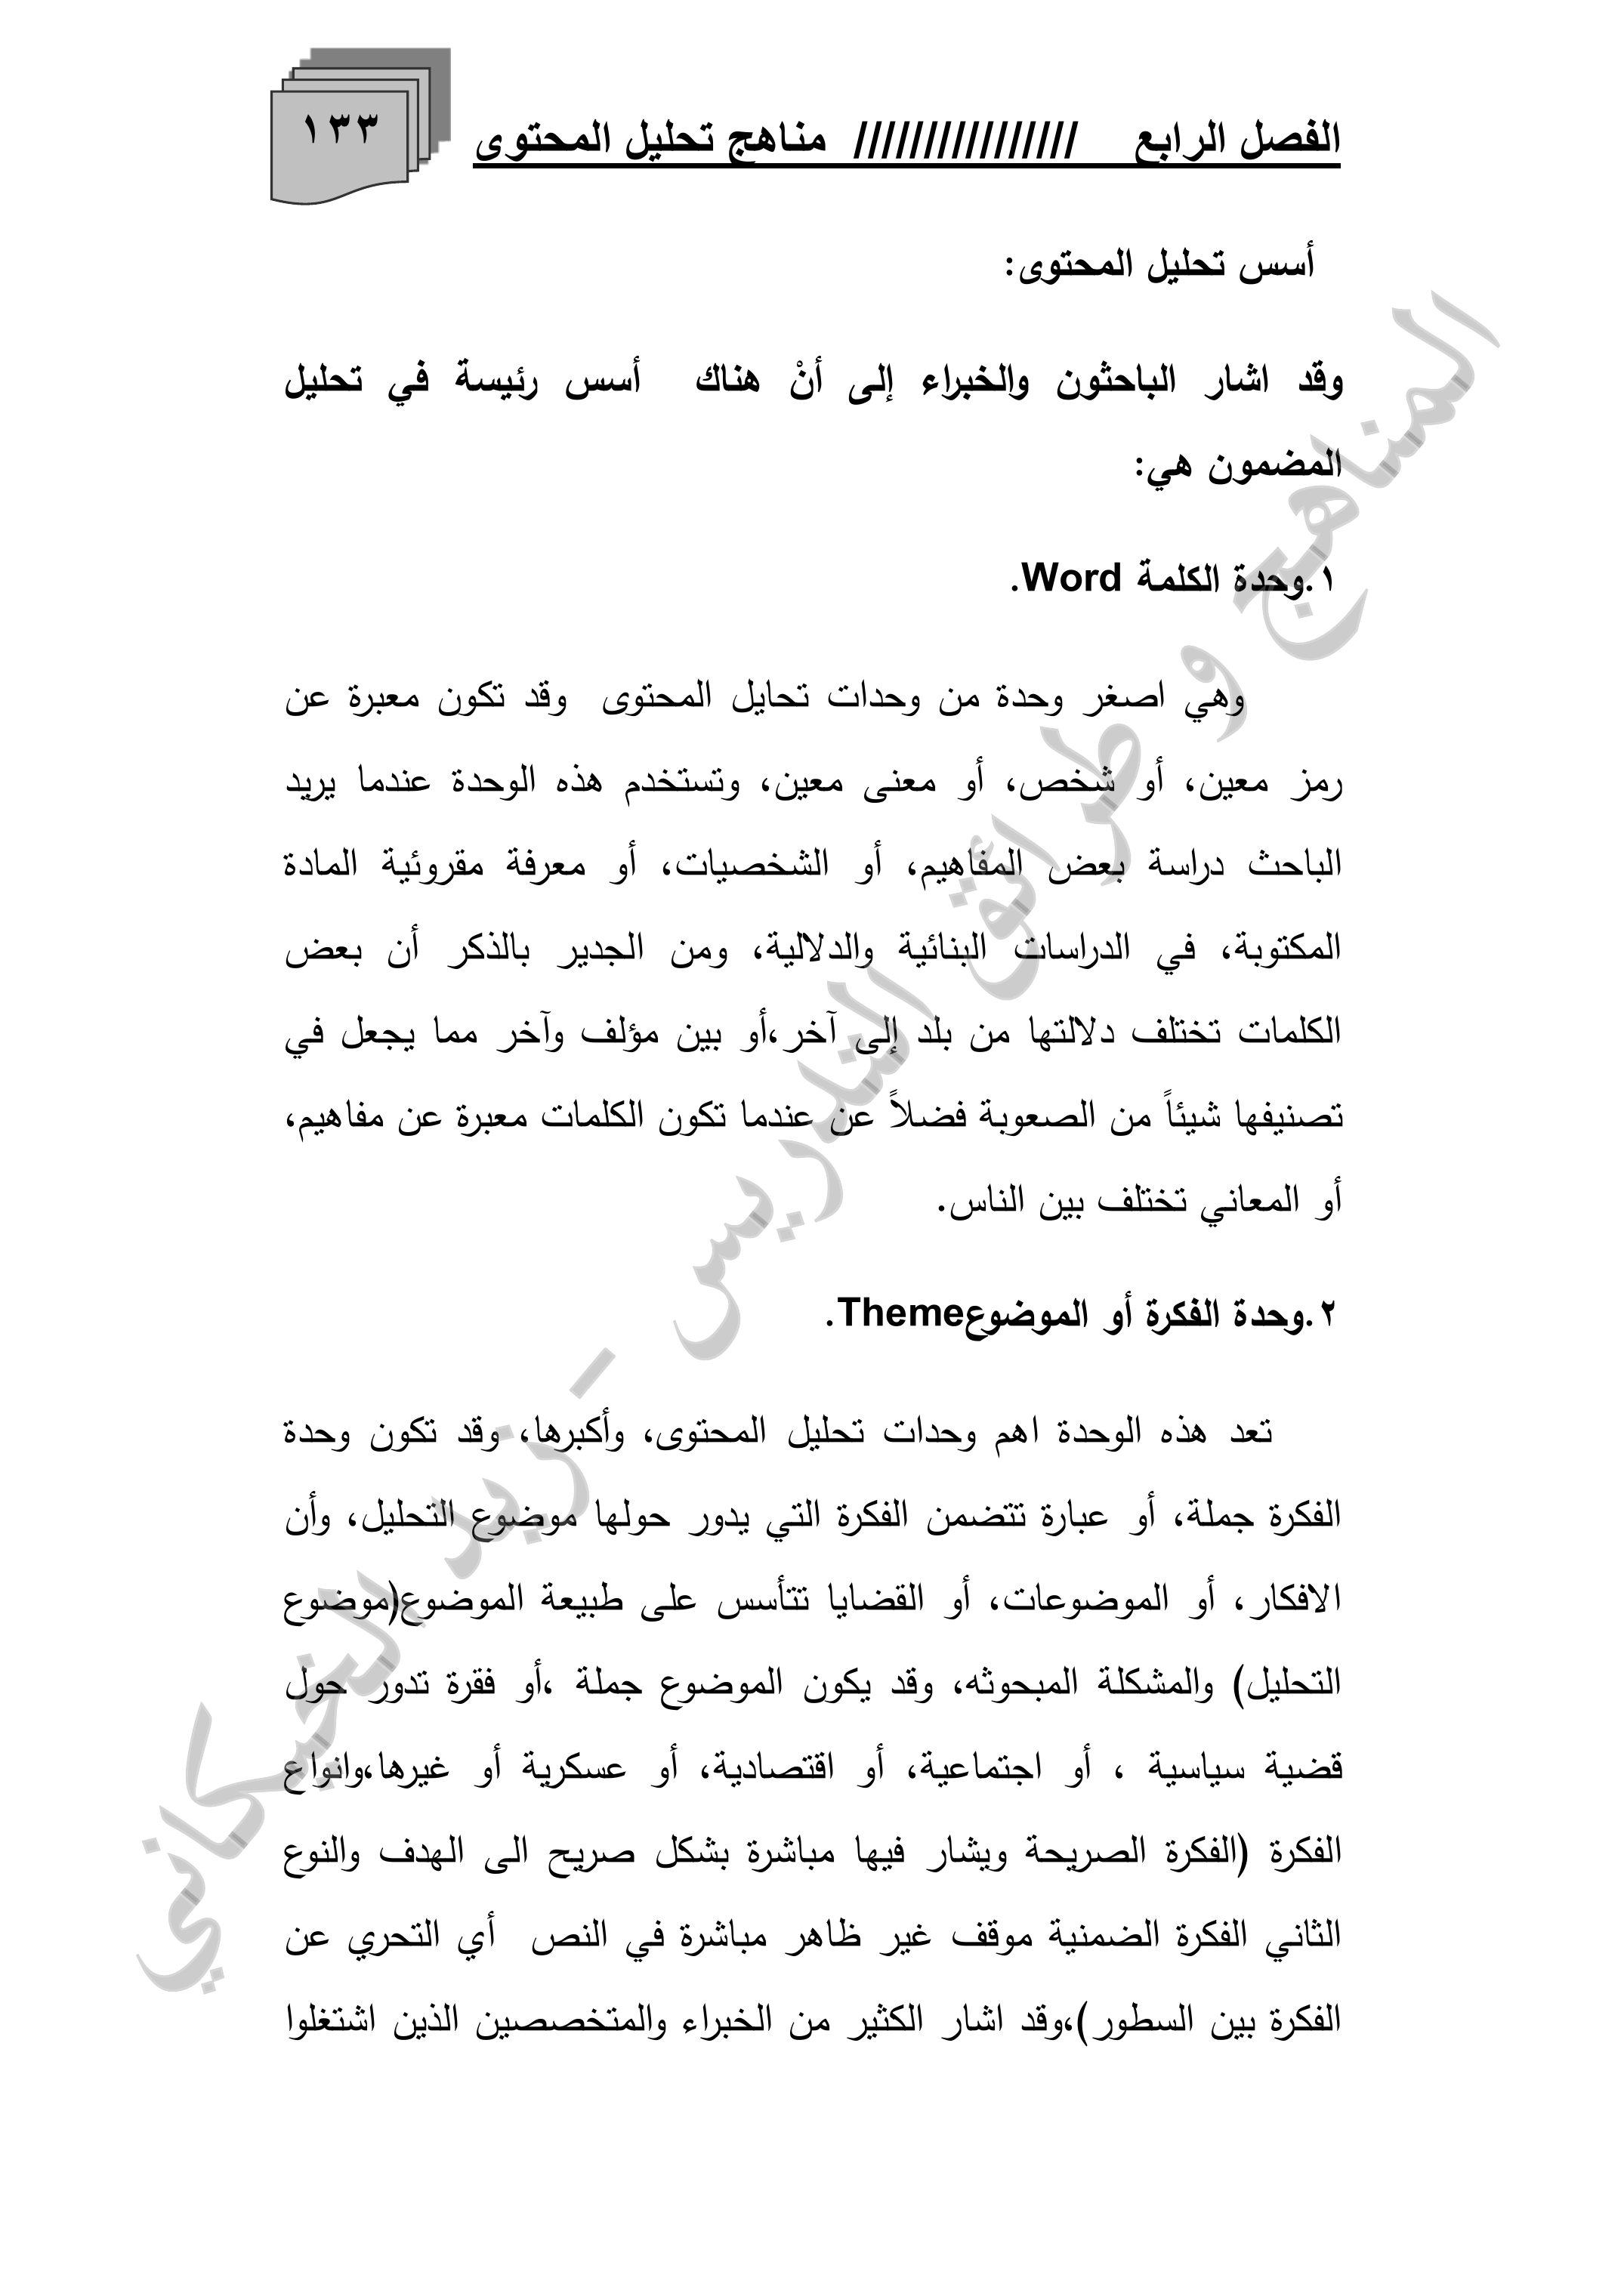 الفصل الرابع //////////////// مناهج تحليل المحتوى
١٣٣
أسس تحليل المحتوى:
وقد اشار الباحثون والخبراء إلى أنْ هناك أسس رئيسة في تحليل
المضمون هي:
١.وحدة الكلمة Word.
وهي اصغر وحدة من وحدات تحايل المحتوى وقد تكون معبرة عن
رمز معين، أو شخص، أو معنى معين، وتستخدم هذه الوحدة عندما يريد
الباحث دراسة بعض المفاهيم، أو الشخصيات، أو معرفة مقروئية المادة
المكتوبة، في الدراسات البنائية والدلالية، ومن الجدير بالذكر أن بعض
الكلمات تختلف دلالتها من بلد إلى آخر،أو بين مؤلف وآخر مما يجعل في
تصنيفها شيئاً من الصعوبة فضلاً عن عندما تكون الكلمات معبرة عن مفاهيم،
أو المعاني تختلف بين الناس.
٢.وحدة الفكرة أو الموضوعTheme.
تعد هذه الوحدة اهم وحدات تحليل المحتوى، وأكبرها، وقد تكون وحدة
الفكرة جملة، أو عبارة تتضمن الفكرة التي يدور حولها موضوع التحليل، وأن
الافكار، أو الموضوعات، أو القضايا تتأسس على طبيعة الموضوع(موضوع
التحليل) والمشكلة المبحوثه، وقد يكون الموضوع جملة ،أو فقرة تدور حول
قضية سياسية ، أو اجتماعية، أو اقتصادية، أو عسكرية أو غيرها،وانواع
الفكرة (الفكرة الصريحة ويشار فيها مباشرة بشكل صريح الى الهدف والنوع
الثاني الفكرة الضمنية موقف غير ظاهر مباشرة في النص أي التحري عن
الفكرة بين السطور)،وقد اشار الكثير من الخبراء والمتخصصين الذين اشتغلوا
المناهج و طرائق التدريس - زيد الخيكاني